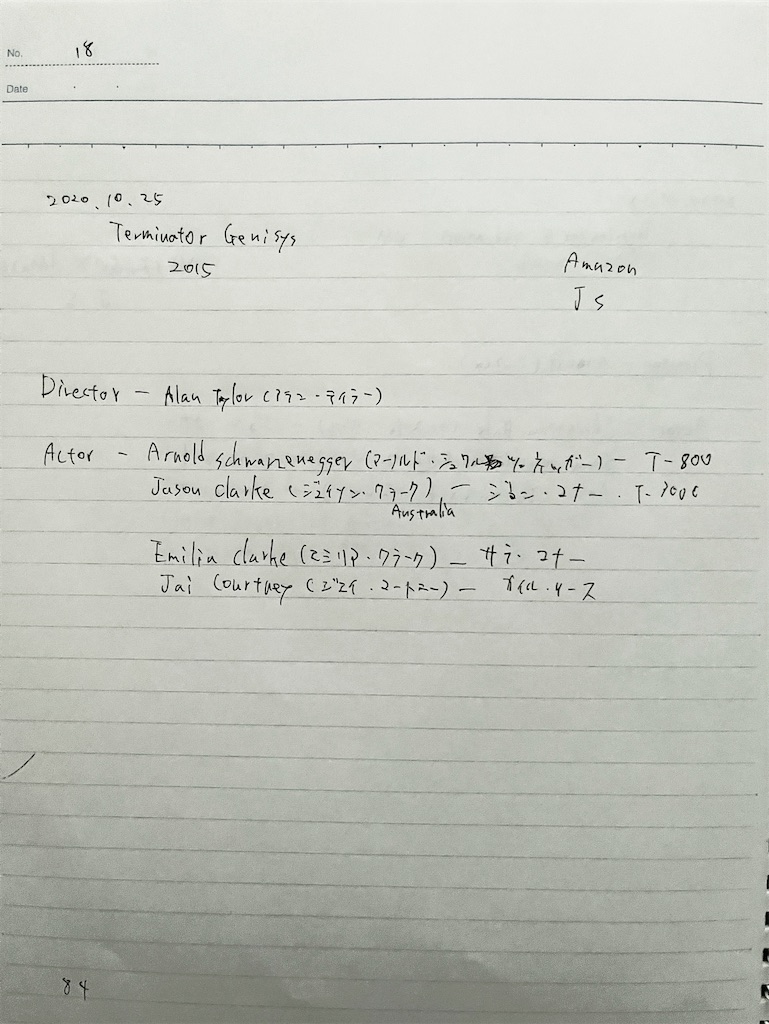 No. 18
Date . .
2020.10.25
Terminator Genisys
2015
Amazon
J S
Director - Alan Taylor (アラン・テイラー)
Actor - Arnold schwarzenegger (アーノルド・シュワルツェネッガー) - T-800
Jason clarke (ジェイソン・クラーク) - ジョン・コナー . T-3000
Australia
Emilia clarke (エミリア・クラーク) - サラ・コナー
Jai Courtney (ジェイ・コートニー) - カイル・リース
84